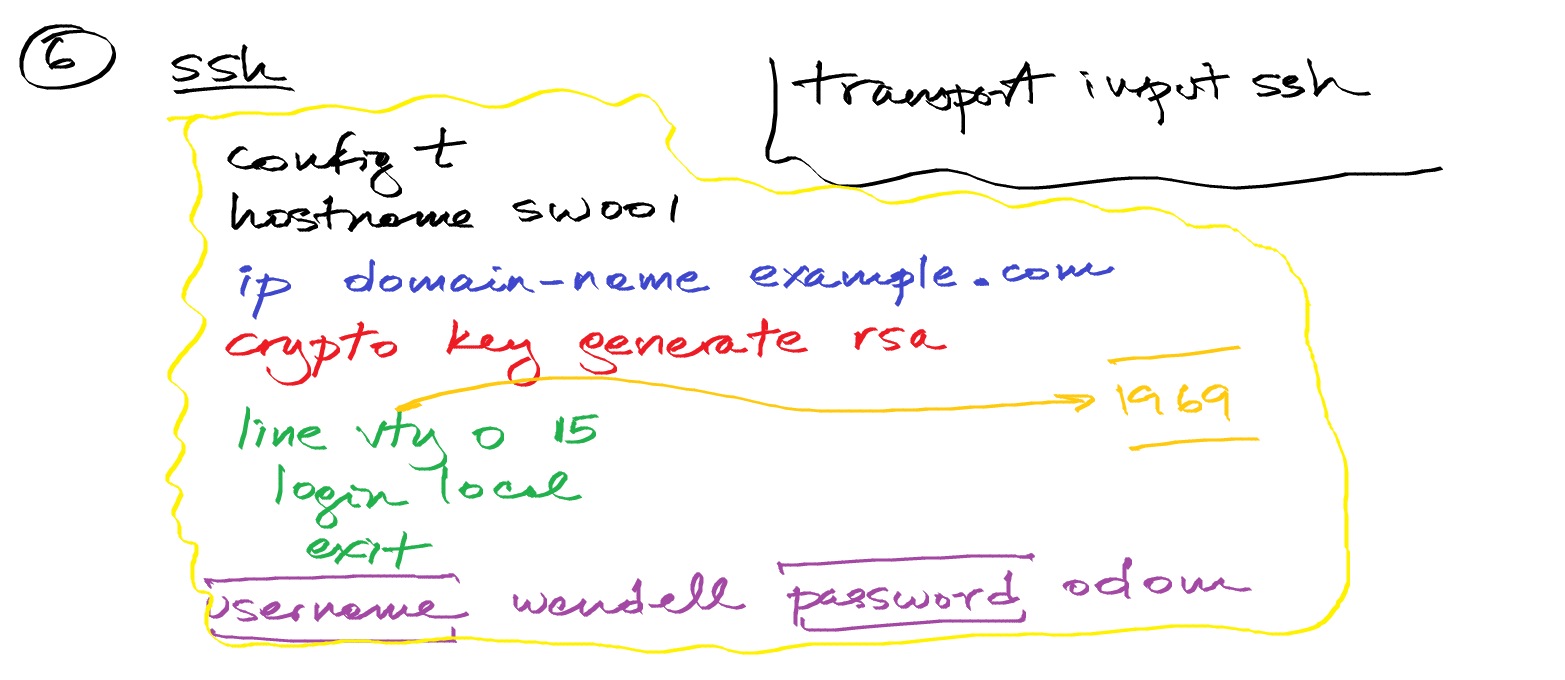 6 ssh
transport input ssh
config t
hostname sw001
ip domain-name example.com
crypto key generate rsa
1969
line vty 0 15
login local
exit
username wendell password odom